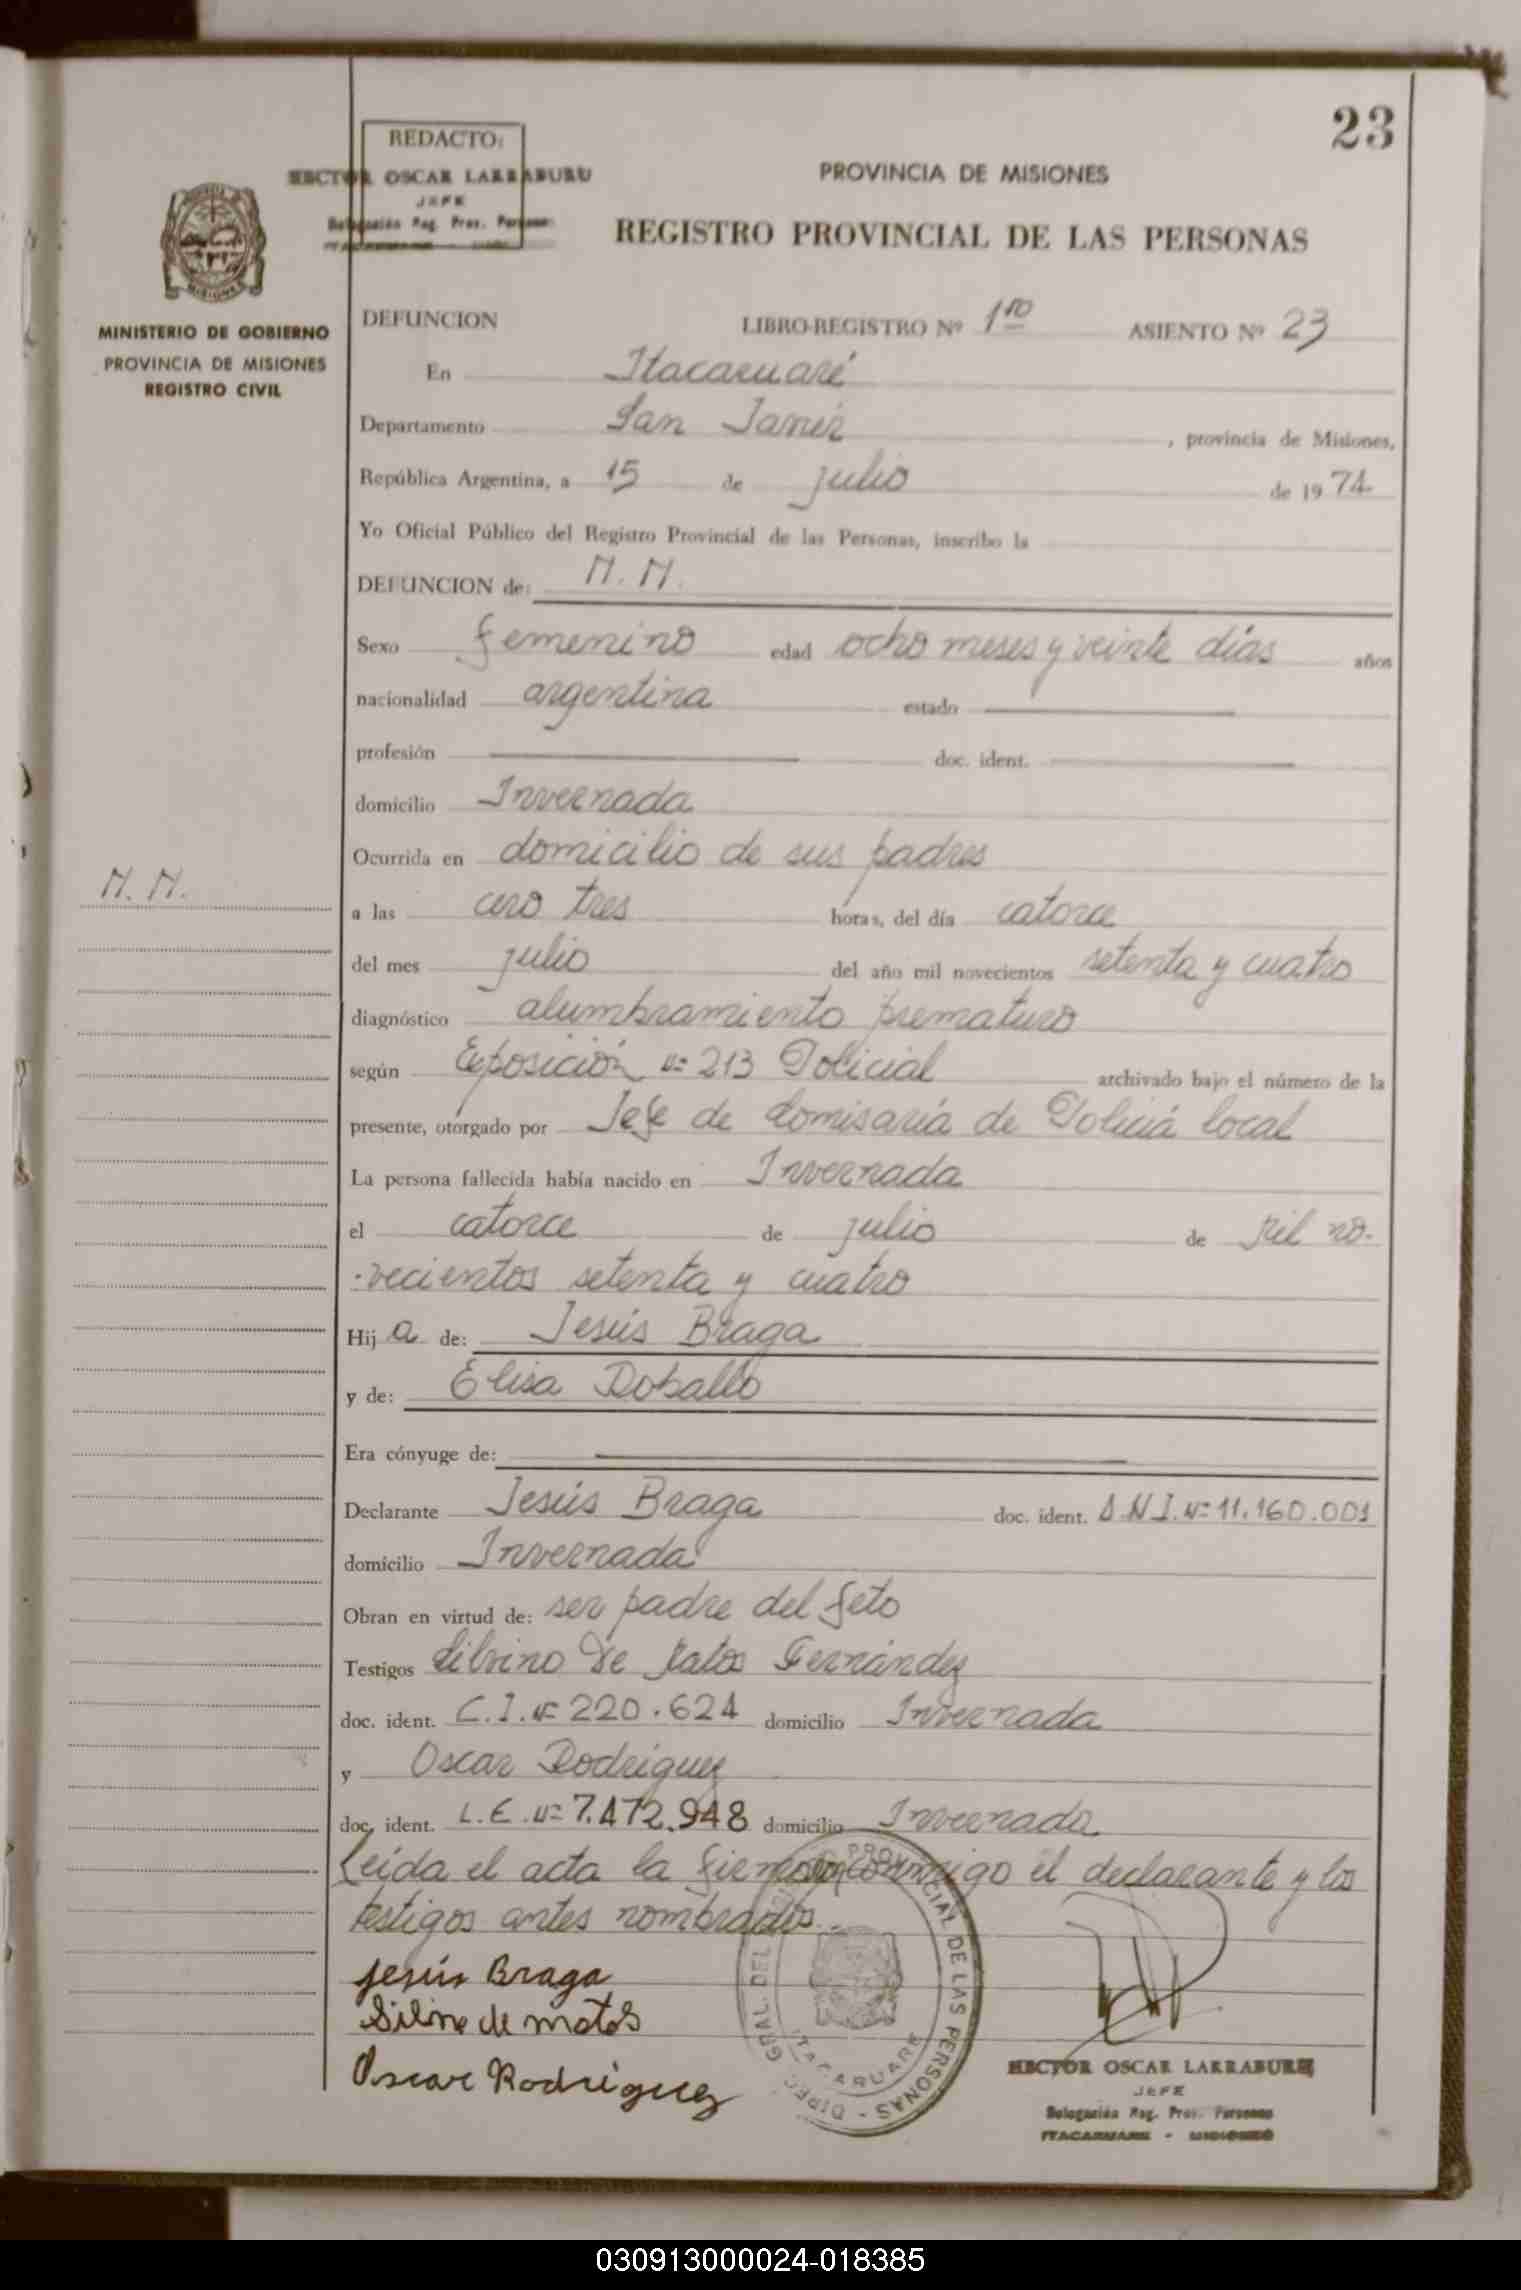 23
REDACTO:
HECTOR OSCAR LARRABURU
JEFE
Delegación Reg. Prov. Personas
PROVINCIA DE MISIONES
REGISTRO PROVINCIAL DE LAS PERSONAS
MISIONES
MINISTERIO DE GOBIERNO
PROVINCIA DE MISIONES
REGISTRO CIVIL
DEFUNCION LIBRO-REGISTRO Nº 1ro ASIENTO Nº 23
En Itacaruaré
Departamento San Javier, provincia de Misiones,
República Argentina, a 15 de julio de 1974
Yo Oficial Público del Registro Provincial de las Personas, inscribo la
DEFUNCION de: N. N.
Sexo femenino edad ocho meses y veinte días años
nacionalidad argentina estado
profesión doc. ident.
domicilio Invernada
Ocurrida en domicilio de sus padres
N. N.
a las cero tres horas, del día catorce
del mes julio del año mil novecientos setenta y cuatro
diagnóstico alumbramiento prematuro
según Exposición nº 213 Policial archivado bajo el número de la
presente, otorgado por Jefe de Comisaría de Policía local
La persona fallecida había nacido en Invernada
el catorce de julio de Mil no-
-vecientos setenta y cuatro
Hija de: Jesús Braga
y de: Elisa Roballo
Era cónyuge de:
Declarante Jesús Braga doc. ident. D.N.I. Nº 11.160.001
domicilio Invernada
Obran en virtud de: ser padre del feto
Testigos Silvino De Matos Fernández
doc. ident. C.I. Nº 220.624 domicilio Invernada
y Oscar Rodriguez
doc. ident. L.E. Nº 7.472.948 domicilio Invernada
Leída el acta la firman conmigo el declarante y los
testigos antes nombrados.
Jesús Braga
de matos
Oscar Rodriguez
DIREC. GRAL. DEL PROVINCIAL DE LAS PERSONAS -
ITACARUARE
HECTOR OSCAR LARRABURU
JEFE
Delegación Reg. Prov. Personas
ITACARUARE - MISIONES
030913000024-018385